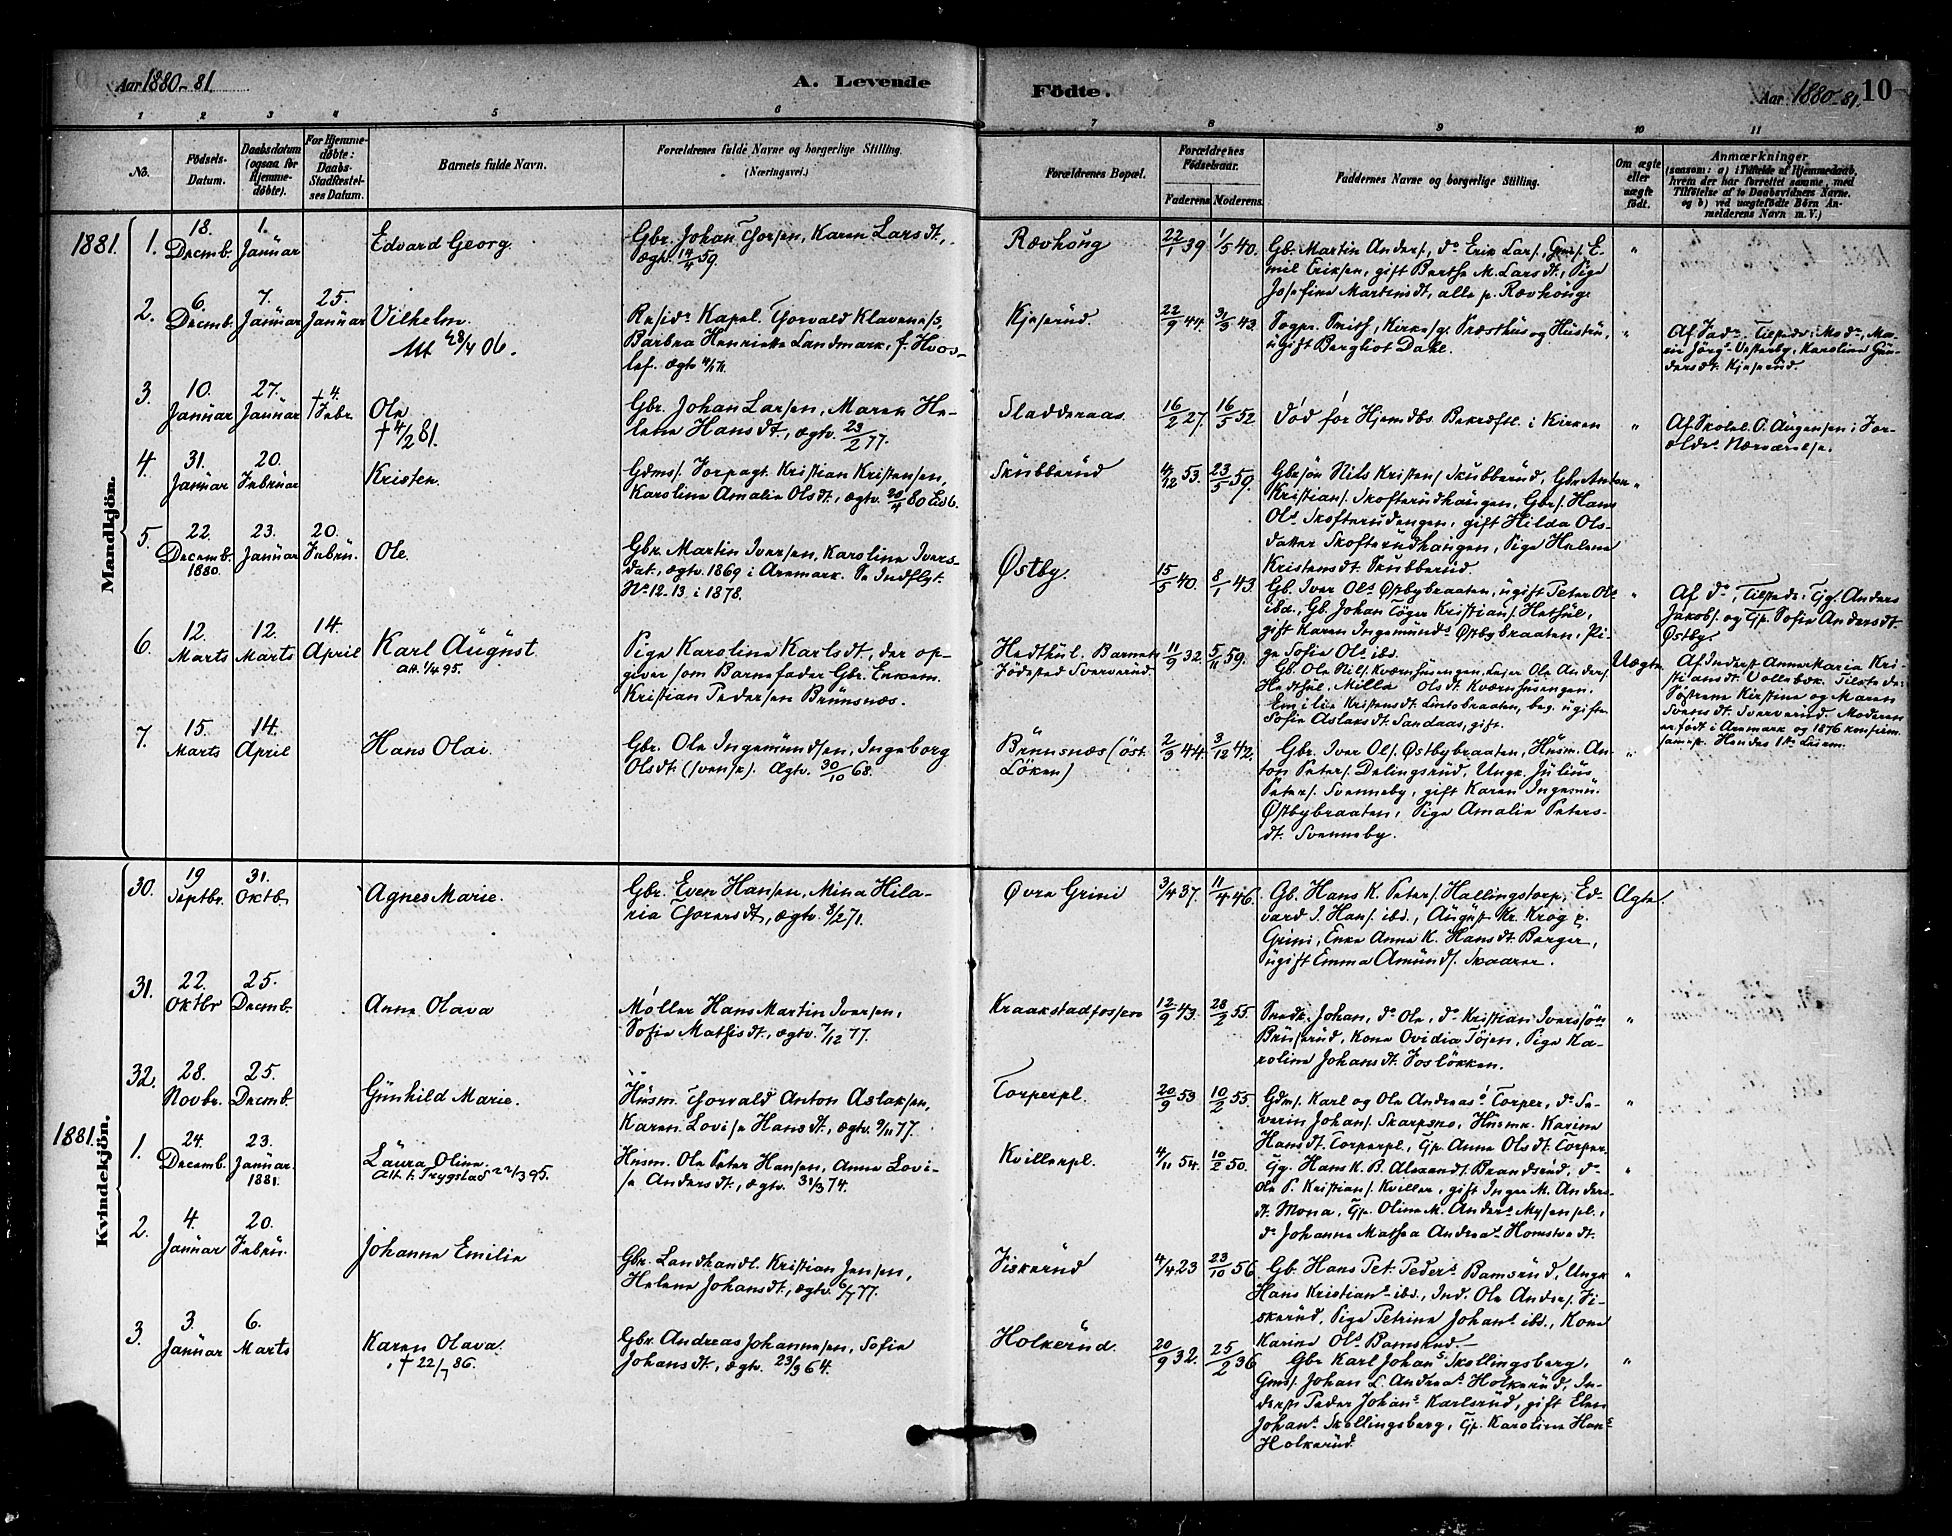 Aar 1880-81.
A. Levende Födte.
Aar 1880-81. 10
1 2 3 4 5 6 7 8 9 10 11
No.
Födsels-Datum.
Daabsdatum (ogsaa for Hjemme-döbte).
For Hjemme-döbte: Daabs-Stadfæstel-ses Datum.
Barnets fulde Navn.
Forældrenes fulde Navne og borgerlige Stilling. (Næringsvei.)
Forældrenes Bopæl.
Forældrenes Födselsaar.
Faderens Moderens.
Faddernes Navne og borgerlige Stilling.
Om ægte eller uægte födt.
Anmærkninger
(saasom: a) i Tilfælde af Hjemmedaab, hvem der har forrettet samme, med Tilföielse af to Daabsvidners Navne. og b) ved uægtefödte Börn An-melderens Navn m. V.)
Mandkjön.
1881. 1. 18. Decemb. 1. Januar
Edvard Georg.
Gbr. Johan Thorsen, Karen Larsdt.,
Ægtv. 14/4 59.
Rævhöug
22/1 39 1/5 40.
Gb. Martin Anders/, do Erik Lars/, Gms/. E-
mil Eriksen, gift Berthe M. Larsdt, Pige
Josefine Martinsdt, alle p. Rævhöug.
"
2. 6. Decemb. 7. Januar 25. Januar
Vilhelm.
Att 28/4 06.
Resid. Kapel. Thorvald Klaveness,
Barbra Henriette Landmark, f. Hvos-
lef. ægtv
Kjeserud.
22/9 44. 31/3 43.
Sogpr. Smith, Kirkesg. Præsthus og Hustru,
ugift Bergliot Dahl.
"
3. 10. Januar 27. Januar † 4. Febr.
Ole
† 4/2 81.
Gbr. Johan Larsen, Maren He-
lene Hansdt., ægtv. 23/2 77.
Sladderaas.
16/2 27. 16/5 52
Död för Hjemdbs. Bekræftl. i Kirken
"
Af Skolel. O. Augensen i For-
ældrs Nærværelse.
4. 31. Januar 20. Februar
Kristen.
Gdms/. Forpagt. Kristian Kristensen,
Karoline Amalie Olsdt, ægtv. 20/4 80
Skubberud
4/12 53. 23/5 59.
Gbrsön Nils Kristens/ Skubberud, Gbr Anton
Kristians/. Skofterudhaugen, Gbrs/. Hans
Ols. Skofterudengen, gift Hilda Ols-
datter Skofterudhaugen, Pige Helene
Kristensdt. Skubberud.
"
5. 22. Decemb. 1880. 23. Januar 20. Febru.
Ole.
Gbr. Martin Iversen, Karoline Ivers-
dat., ægtv. 1869 i Aremark. Se Indflyt.
No 12-13. i 1878.
Østby.
15/5 40. 8/1 43.
Gb. Iver Ols. Østbybraaten, ugift Peter Ols
ibd., Gb. Johan Töger Kristians/. Hethul,
gift Karen Ingemunds Østbybraaten, Pi-
ge Sofie Ols. ibd.
"
Af do, Tilsteds: Tg. Anders
Jakobs/. og Tp. Sofie Andersdt.
Østby.
6. 12. Marts 12. Marts 14. April
Karl August.
att. 1/4 95.
Pige Karoline Karlsdt, der op-
giver som Barnefader Gbr. Enkem.
Kristian Pedersen Brünsnæs.
Hedthul. Barnets
Födested Sververud.
11/9 32. 5/11 59.
Gb. Ole Nils/. Kværnhusengen, Lejer Ole Anders/.
Hedthul, Milla Olsdt. Kværnhusengen.
Emilie Kristensdt. Lintobraaten, beg. ugifte
Sofie Aslaksdt. Sandaas, gift.
Uægte
Af Inderst Anne Maria Kri-
stiansdt Vollebæk. Tilstede:
Söstrene Kirstine og Maren
Svensdt. Sververud. Moderen
er födt i Aremark og 1876 konfirm.
sammest. Hendes 1ste Leierm.
7. 15. Marts 14. April
Hans Olai.
Gbr. Ole Ingemundsen, Ingeborg
Olsdt. (svensk). Ægtv. 30/10 68.
Brünsnæs (öst.
Löken)
2/3 44. 3/12 42.
Gbr. Iver Ols/. Østbybraaten, Husm. An-
ton Peters/. Delingsrud, Ungk. Julius
Peters/. Svenneby, gift Karen Ingemu.
Østbybraaten, Pige Amalie Peters-
dt. Svenneby.
"
Kvindekjön.
30. 19 Septbr. 31. Oktb.
Agnes Marie.
Gbr. Even Hansen, Mina Hila-
ria Thorersdt, ægtv. 8/2 71.
Øvre Grini
3/4 37. 11/4 46.
Gb. Hans K. Peters/. Hallingstorp, Ed-
vard J. Hans/. ibd., August Kr. Krog p.
Grini, Enke Anne K. Hansdt. Berger,
ugift Emma Amunds/. Skaarer.
Ægte.
31. 22. Oktbr 25. Decemb.
Anne Olava
Møller Hans Martin Iversen,
Sofie Mathisdt., ægtv. 7/12 77.
Kraakstadfossen
12/9 43. 28/2 55.
Snedk. Johan, do Ole, do Kristian Iverssön
Bruserud, Kone Ovidia Töjen, Pige Ka-
roline Johansdt. Foslökken.
"
32. 28. Novbr. 25. Decemb.
Gunhild Marie.
Husm. Thorvald Anton Aslaksen,
Karen Lovise Hansdt., ægtv. 9/11 77.
Torperpl.
20/9 53 10/2 55.
Gdms/. Karl og Ole Andreas/ Torper, do Se-
verin Johans/. Skarpsno, Husmk. Karine
Hansdt. Torperpl., Tp. Anne Olsdt. Torper.
"
1881. 1. 24. Decemb. 23. Januar 1881.
Laura Oline.
Att. t. Trygstad 22/3 95.
Husm. Ole Peter Hansen, Anne Lovi-
se Andersdt., ægtv. 31/3 74.
Kvillerpl.
4/11 54. 10/2 50.
Tg. Hans K. B. Alexandt. Brandsrud, do
Ole P. Kristians/. Kviller, gift Inger M. Anders-
dt. Mona, Tp. Oline M. Anders Mysenpl.,
do Johanne Mathea Andreas. Homstvedt.
"
2. 4. Januar 20. Febru.
Johanne Emilie
Gbr. Landhandl. Kristian Jensen,
Helene Johansdt., ægtv. 6/7 77.
Fiskerud
4/4 23 23/10 56.
Gb. Hans Pet. Peders Bamsrud, Ungk.
Hans Kristians. ibd., Ind. Ole Anders/. Fi-
skerud, Pige Petrine Johans. ibd., Kone
Karine Ols. Bamsrud.
"
3. 3. Januar 6. Marts
Karen Olava.
† 22/7 86.
Gbr. Andreas Johannesen, Sofie
Johansdt., ægtv. 23/3 64.
Holkerud
20/9 32. 25/2 36.
Gbr Karl Johans Skollingsberg,
Gms/. Johan L. Andreas Holkerud, In-
derst Peder Johans Karlsrud, gift Elen
Johans Skollingsberg, Tp. Karoline Hans
Holkerud.
"